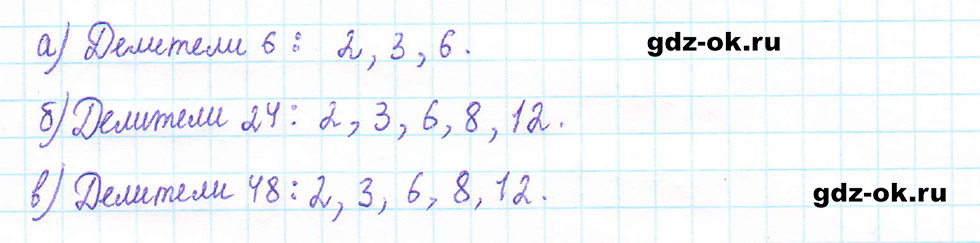 а) Делители 6: 2, 3, 6.
gdz-ok.ru
б) Делители 24: 2, 3, 6, 8, 12.
в) Делители 48: 2, 3, 6, 8, 12.
gdz-ok.ru